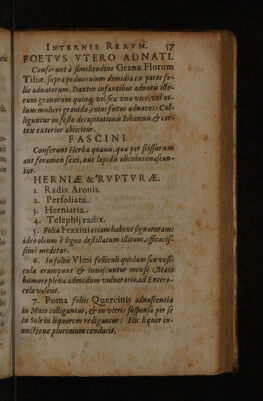 INTERNIS RERUM. 57
FOETVS VTERO ADNATI.
Conferunt à similitudine Grana Florum
Tiliæ, supra pedunculum dimidia ex parte fo-
lio adnatorum. Dantur infantibus adnatis illo-
rum granorum quinq; vel sex vna vice, vel et-
iam mulieri gravidæ, cuius fœtus adnatus: Col-
liguntur in festo decapitationis Iohannis, & cor-
tex exterior abiicitur.
FASCINI.
Conferunt Herbæ quævis, quæ per scissuram
aut foramen saxi, aut lapidis alicuius enascun-
tur.
HERNIÆ & RVPTVRÆ.
1. Radix Aronis.
2. Perfoliata.
3. Herniaria.
4. Telephij radix.
5. Folia Fraxini etiam habent signaturam:
ideò oleum è ligno destillatum illitum, efficacis-
simè medetur.
6. In foliis Vlmi folliculi quidam seu vesi-
culæ erumpunt & innascuntur mense Maio
humore plenæ admodum vulnerario, ad Entero-
celas valent.
7. Poma foliis Quercinis adnascentia
in Maio colligantur, & in vitris suspensa per se
in Sole in liquorem rediguntur: Hic liquor in-
unctione plurimum conducit.